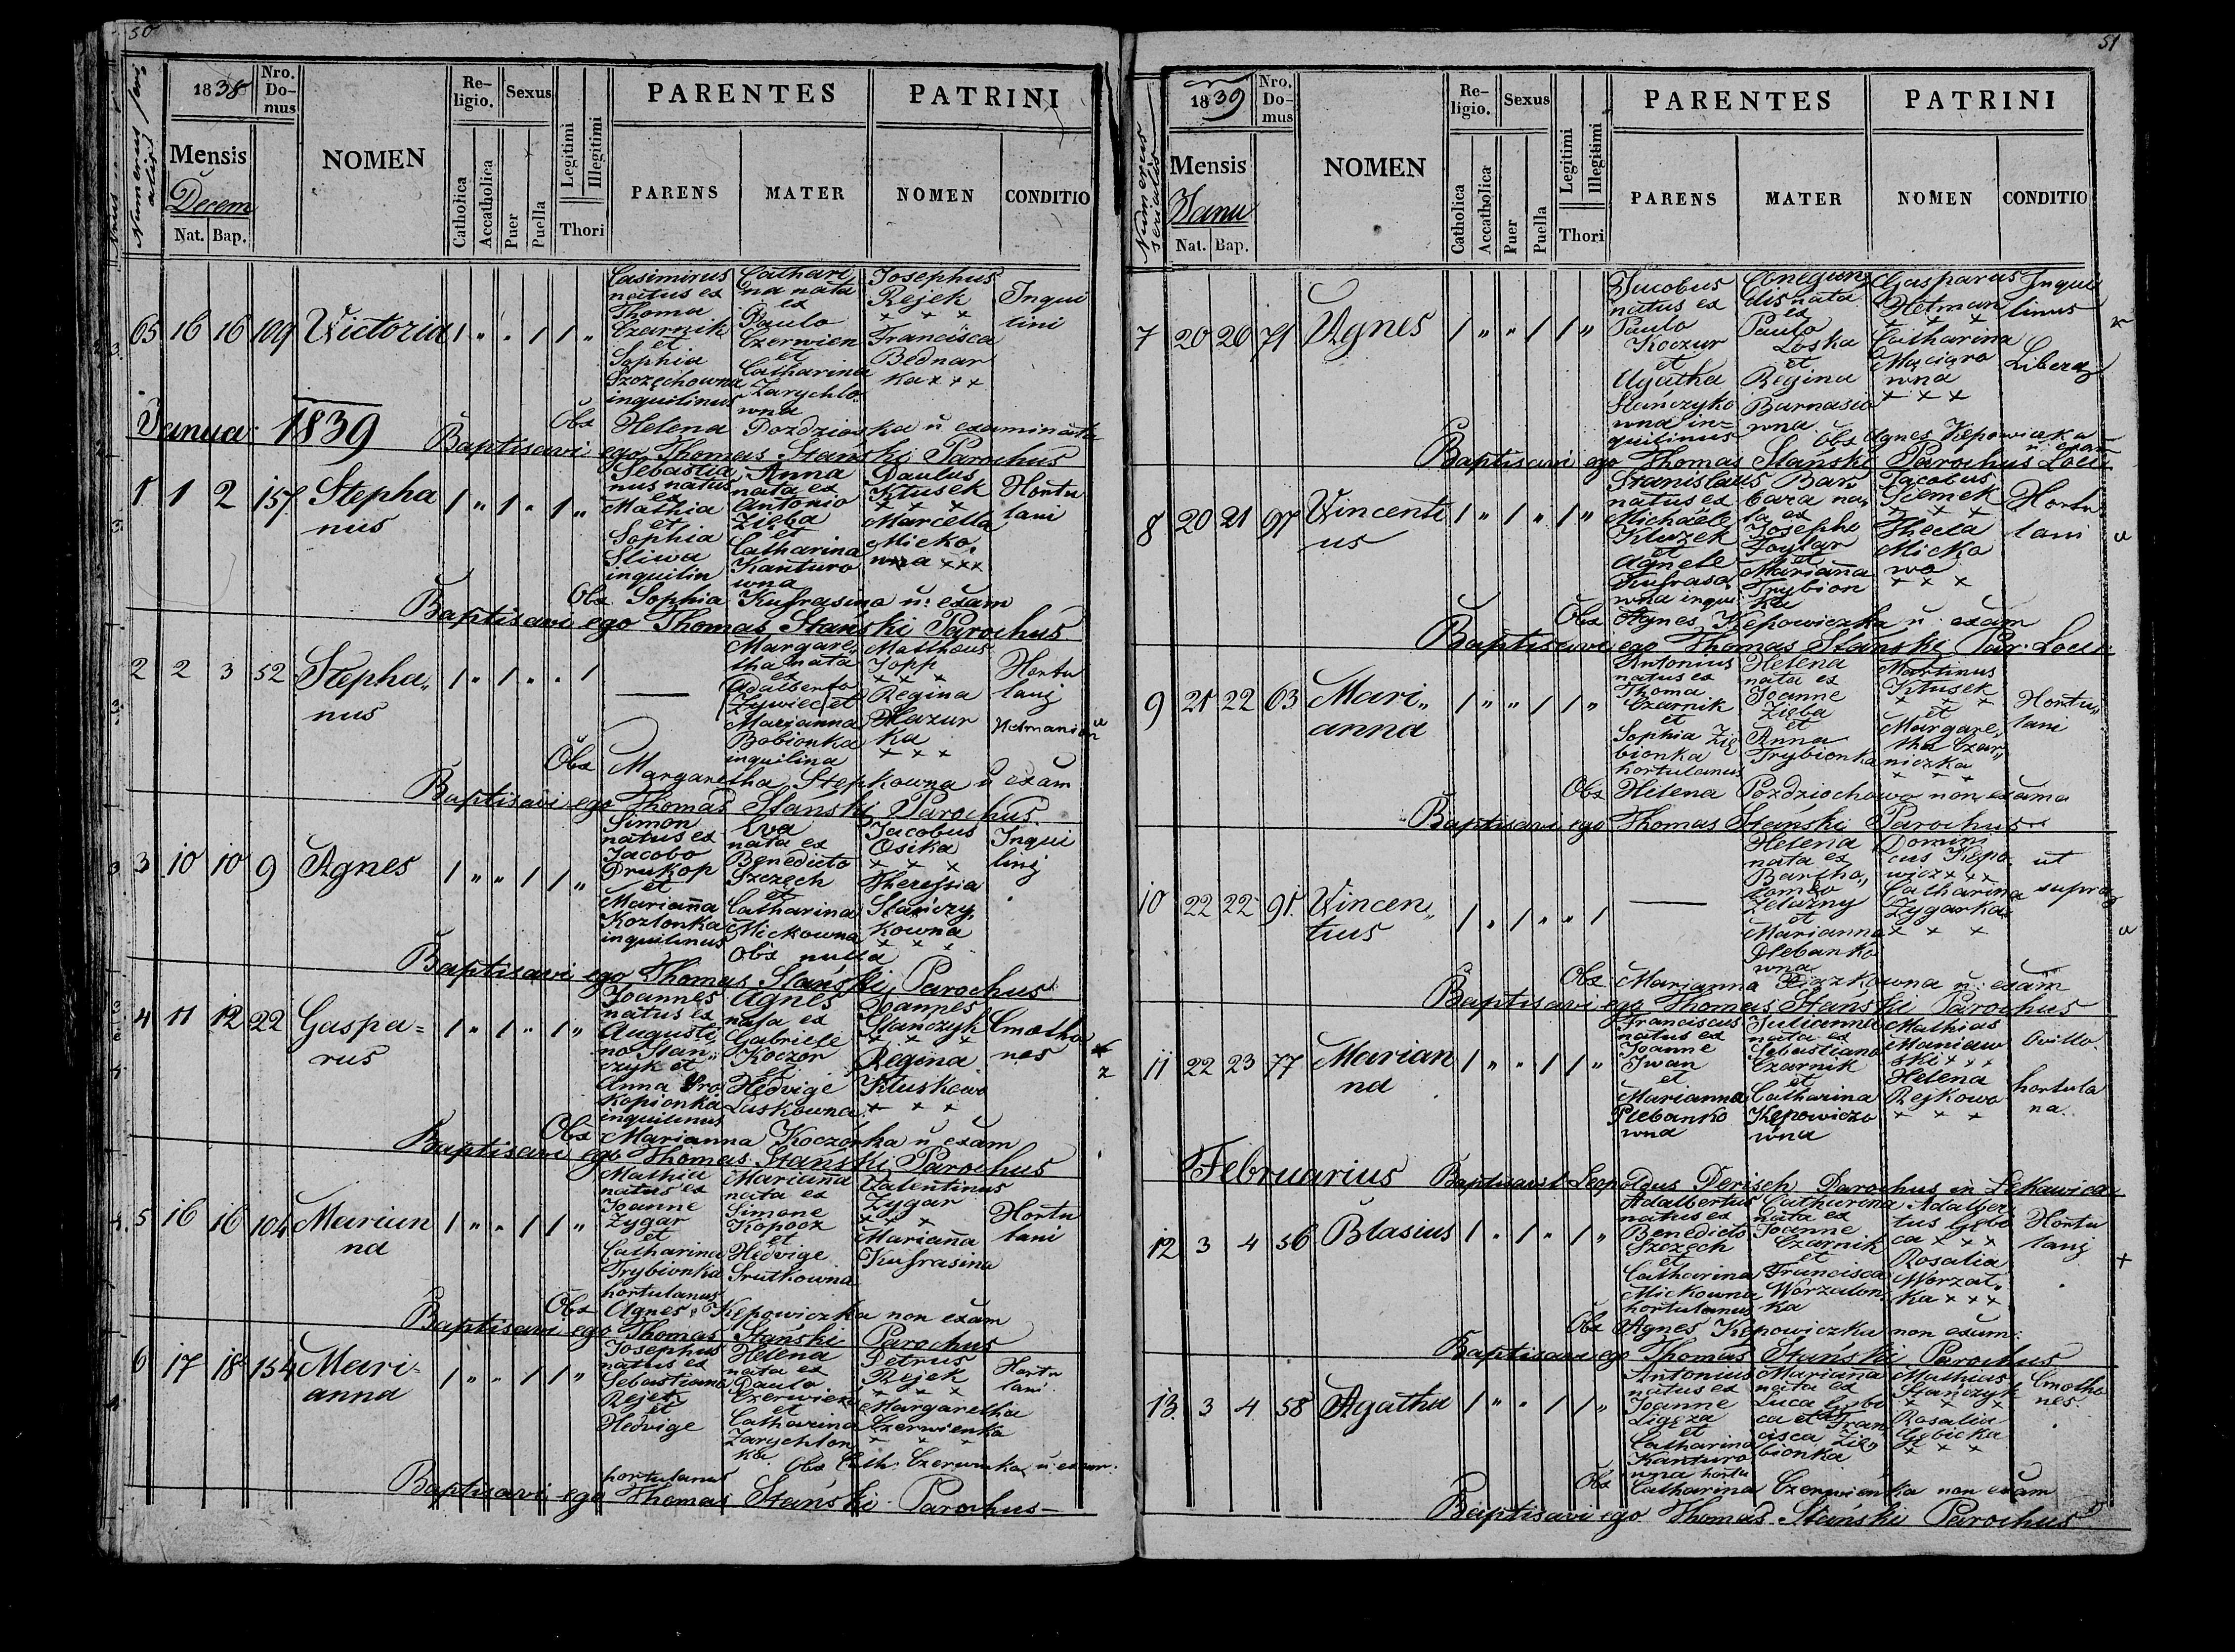 50
Numerus seri
alis
1838
Nro.
Do-
mus
Mensis
Decem
Nat. Bap.
NOMEN
Re-
ligio.
Catholica
Accatholica
Sexus
Puer
Puella
Legitimi
Illegitimi
Thori
PARENTES
PARENS
MATER
PATRINI
NOMEN
CONDITIO
65 16 16 109 Victoria 1 " " 1 1 "
Casimirus
natus ex
Thoma
Czarnik
et
Sophia
Szczęchowna
inquilinus
Cathari
na nata
ex
Paulo
Czerwien
et
Catharina
Zarychlo
wna
Josephus
Rejek
× × ×
Francisca
Bednar
ka × × ×
Inqui
lini
Obs Helena Pozdzioska u examinata
Baptisavi ego Thomas Stański Parochus
Janua: 1839
1 1 2 157 Stepha
nus
1 " 1 " 1 "
Sebastia
nus natus
ex
Mathia
et
Sophia
Sliwa
inquilin
Anna
nata ex
Antonio
Zięba
et
Catharina
Kanturo
wna
Paulus
Kłusek
× × ×
Marcella
Micko
wna × × ×
Hortu
lani
Obs Sophia Kufrasina u: exam
Baptisavi ego Thomas Stanski Parochus
2 2 3 52 Stepha„
nus
1 " 1 " " 1
Margare
tha nata
ex
Adalberto
Żywiec et
Marianna
Bobionka
inquilina
Matthæus
Jopp
× × ×
Regina
Mazur
ka
× × ×
Hortu
lanj
Obs Margaretha Stepkowna u exam
Baptisavi ego Thomas Stanski Parochus.
3 10 10 9 Agnes 1 " " 1 1 "
Simon
natus ex
Jacobo
Prukop
et
Marianna
Kozlonka
inquilinus
Eva
nata ex
Benedicto
Szczęch
et
Catharina
Mickowna
Jacobus
Osika
× × ×
Theressia
Stańczy
kowna
× × ×
Inqui
linj
Obs nulla
Baptisavi ego Thomas Stański Parochus
4 11 12 22 Gaspa=
rus
1 " 1 " 1 "
Joannes
natus ex
Augusti
no Stan„
czyk et
Anna Pro
kopionka
inquilinus
Agnes
nata ex
Gabriele
Koczor
et
Hedvige
Luskowna
Joannes
Stańczyk
× × ×
Regina
Kłuskowo
× × ×
Cmetho
nes
Obs Marianna Koczórka u exam
Baptisavi ego Thomas Stański Parochus
5 16 16 104 Marian
na
1 " " 1 1 "
Mathia
natus ex
Joanne
Zygar
et
Catharina
Trybionka
hortulanus
Marianna
nata ex
Simone
Kopocz
et
Hedvige
Srutkowna
Valentinus
Zygar
× × ×
Marianna
Kufrasina
Hortu
lani
Obs Agnes Kępowiczka non exam
Baptisavi ego Thomas Stański Parochus
6 17 18 154 Mari-
anna
1 " " 1 1 "
Josephus
natus ex
Sebastiano
Rejek
et
Hedvige
hortulanus
Helena
nata ex
Paulo
Czerwien
et
Catharina
Zarychlon
ka
Petrus
Rejek
× × ×
Margaretha
Czerwienka
× × ×
Hortu
lani
Obs Cath: Czerwienka u: exam:
Baptisavi ego Thomas Stański Parochus
51
Numerus
serialis
1839
Nro.
Do-
mus
Mensis
Janu
Nat. Bap.
NOMEN
Re-
ligio.
Catholica
Accatholica
Sexus
Puer
Puella
Legitimi
Illegitimi
Thori
PARENTES
PARENS
MATER
PATRINI
NOMEN
CONDITIO
7 20 20 71 Agnes 1 " " 1 1 "
Jacobus
natus ex
Paulo
Koczur
et
Agatha
Stańczyko
wna in=
quilinus
Cunegun
dis nata
ex
Paulo
Loska
et
Regina
Barnasio
wna
Gasparus
Hetman
× × ×
Catharina
Maciąro
wna
× × ×
Inqui
linus
Libera
Obs Agnes Kępowiczka
u exam
Baptisavi ego Thomas Stański Parochus Loci
8 20 21 97 Vincenti
us
1 " 1 " 1 "
Stanislaus
natus ex
Michaële
Kluzek
et
Agnete
Kufraso
wna inqui
Bar
bara na„
ta ex
Josepho
Foytar
et
Marianna
Trybion
ka
Jacobus
Siemek
× × ×
Thecla
Micko
wo
× × ×
Hortu
lani
Obs Agnes Kępowiczka u: exam
Baptisavi ego Thomas Stanski Par: Loci:
9 21 22 63 Mari„
anna
1 " " 1 1 "
Antonius
natus ex
Thoma
Czarnik
et
Sophia Zię
bionka
hortulanus
Helena
nata ex
Joanne
Zięba
et
Anna
Trybionka
Martinus
Kłusek
× × ×
et
Margare„
tha Czar„
niczka
× × ×
Hortu„
lani
Obs Helena Pozdziochowo non exama
Baptisavi ego Thomas Stański Parochus
10 22 22 91. Vincen„
tius
1 " 1 " " 1
Helena
nata ex
Bartho„
lomeo
Zelazny
et
Marianna
Plebanko
wna
Domini
cus Kępo
wicz × × ×
Catharina
Zygarka
× × ×
ut
supra
Obs Marianna u: exam
Baptisavi ego Thomas Stański Parochus
11 22 23 77 Marian
na
1 " " 1 1 "
Franciscus
natus ex
Joanne
Iwan
et
Marianna
Plebanko
wna
Julianna
nata ex
Sebastiano
Czarnik
et
Catharina
Kępowiczo
wna
Mathias
Maniaw
ski × × ×
Helena
Rejkowo
× × ×
hortula
na
Februarius Baptisavit Leopoldus Perisch Parochus in Łekawica
12 3 4 56 Blasius 1 " 1 " 1 "
Adalbertus
natus ex
Benedicto
Szczęch
et
Catharina
Mickowna
hortulanus
Catharina
nata ex
Joanne
Czarnik
et
Francisca
Worzalon
ka
Adalber
tus Gębi
ca × × ×
Rosalia
Worzat„
ka × × ×
Hortu
lanj
Obs Agnes Kępowiczka non exam:
Baptisavi ego Thomas Stański Parochus
13. 3 4 58 Agatha 1 " " 1 1 "
Antonius
natus ex
Joanne
Ligęza
et
Catharina
Kanturo
wna hortu
Marianna
nata ex
Luca Gębi
ca et Fran
cisca Zię
bionka
Mathias
Stańczyk
× × ×
Rosalia
Gębicka
× × ×
Cmetho
nes
Obs Catharina Czerwienka non exam
Baptisavi ego Thomas Stański Parochus